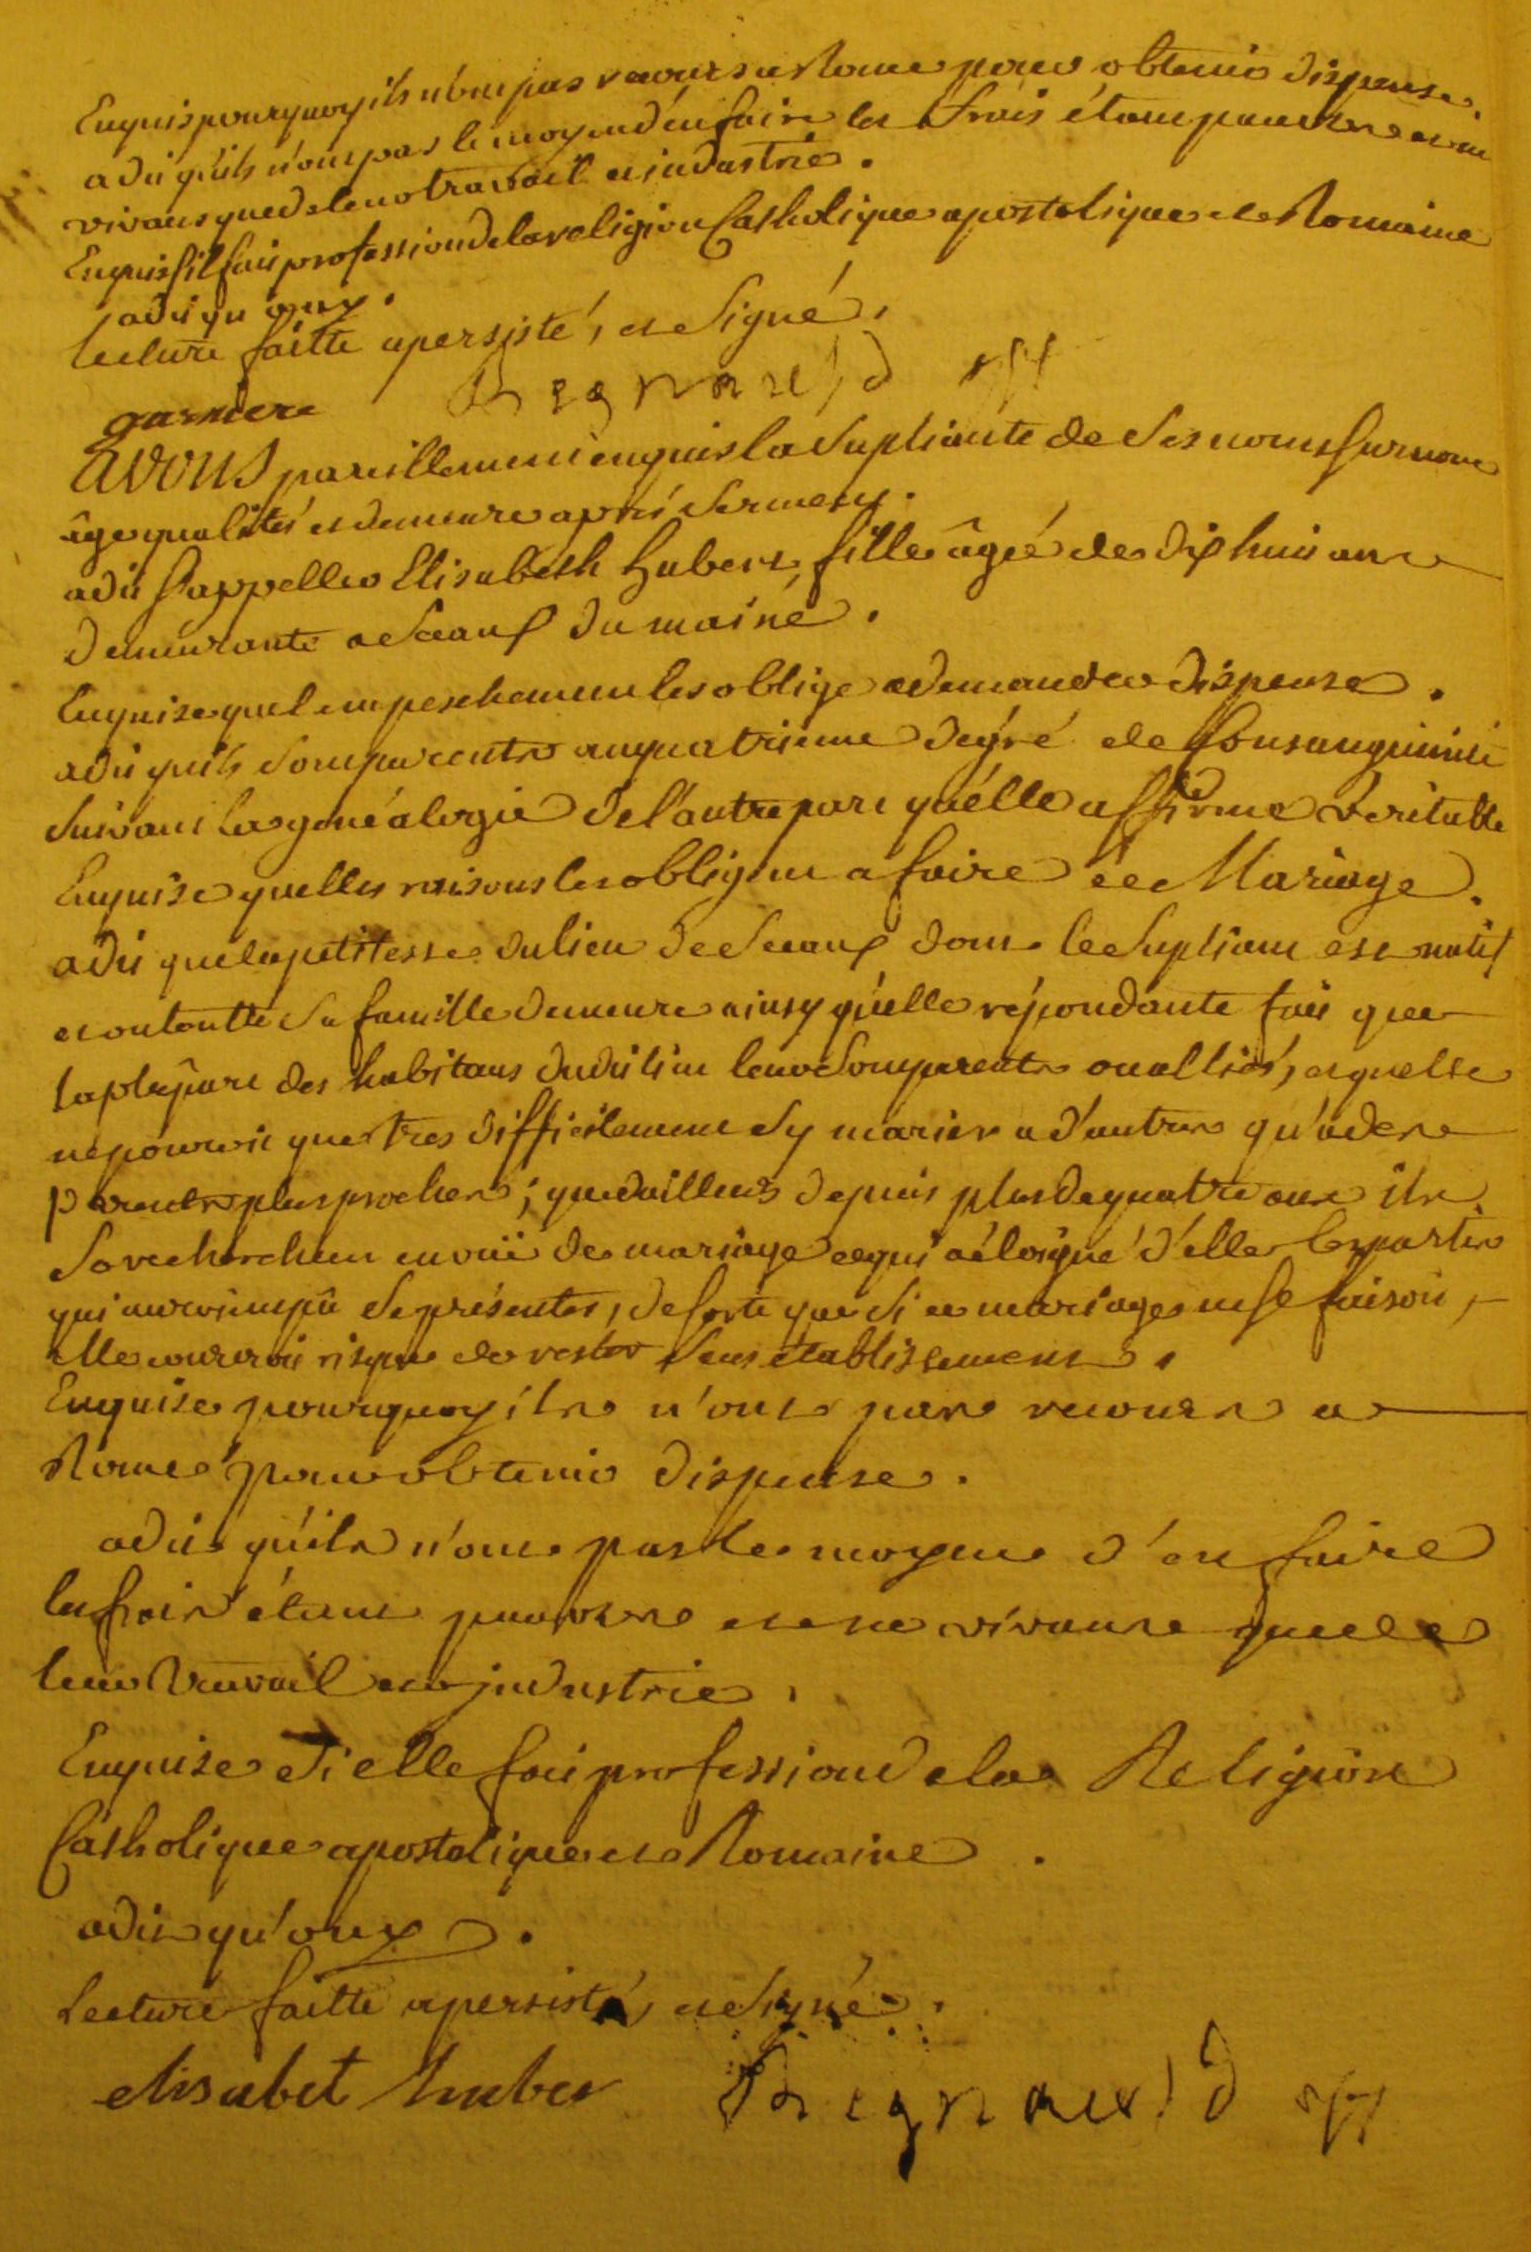 Enquis pourquoy ils n'ont pas recours a Rome pour obtenir dispense
a dit qu'ils n'ont pas le moyen d'en faire les frais étant pauvres et ne
vivans que de leur travail et industrie.
Enquis s'il fait profession de la religion Catholique apostolique et Romaine
a dit qu'ouy.
Lecture faitte a persisté, et Signé.
garnier Regnauld
Avons pareillement enquis la Supliante de Ses noms Surnoms
âge qualités et demeure aprés Serment.
a dit S'appeller Elisabeth hubert, fille âgée de dix huit ans
demeurante a Sceaux du maine.
Enquise quel empeschement les oblige a demander dispense.
a dit quils Sont parents au quatrieme degré de Consanguinité
Suivant la généalogie de l'autre part qu'elle affirme véritable
Enquise quelles raisons les obligent a faire ce Mariage.
a dit que la petitesse du lieu de Sceaux dont le Supliant est natif
et ou toutte Sa famille demeure ainsy qu'elle répondante fait que
la plûpart des habitans dudit lieu leur Sont parents ou alliés, et quelle
ne pouroit que tres difficilement Sy marier a d'autres qu'a des
parents plus proches; que dailleurs depuis plus de quatre ans ils
Se recherchent en vuë de mariage ce qui a éloigné d'elle les partis
qui auroient pû Se présenter, de Sorte que Si ce mariage ne Se faisoit,
elle courroit risque de rester Sans établissement.
Enquise pourquoy ils n'ont pas recours a
Rome pour obtenir dispense.
a dit qu'ils n'ont pas le moyen d'en faire
les frais étant pauvres et ne vivans que de
leur travail et industrie.
Enquise Si elle fait profession de la Religion
Catholique apostolique et Romaine.
a dit qu'ouy.
Lecture faitte a persisté, et Signé.
elisabet huber Regnauld